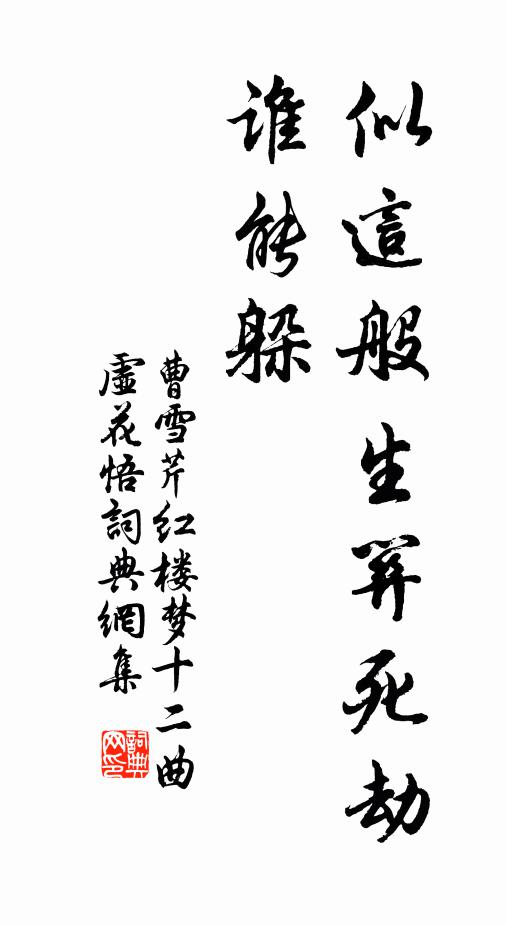 似這般生關死劫
誰能躲
曹雪芹红楼梦十二曲
虛花悟詞典網集
詞典网印